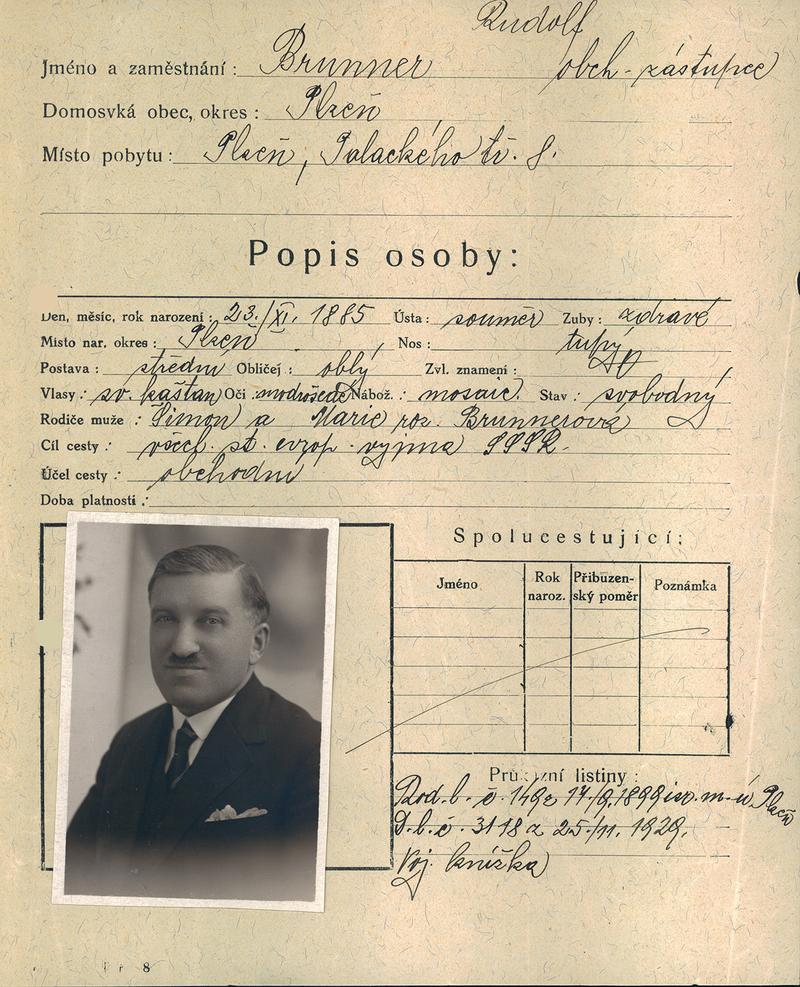 Rudolf
Jméno a zaměstnání : Brunner obch. zástupce
Domosvká obec, okres : Plzeň
Místo pobytu : Plzeň, Palackého tř. 8.
Popis osoby:
Den, měsíc, rok narození : 23./XI. 1885 Ústa : souměr Zuby : zdravé
Místo nar. okres : Plzeň Nos : tupý
Postava : střední Obličej : oblý Zvl. znamení :
Vlasy : sv. kaštan Oči modrošedé Nábož. : mosaic. Stav : svobodný
Rodiče muže : Šimon a Marie roz. Brunnerová
Cíl cesty : všech. st. evrop. vyjma SSSR.
Účel cesty : obchodní
Doba platnosti :
Spolucestující:
Jméno Rok naroz. Příbuzenský poměr Poznámka
Průkazní listiny :
Rod. l. č. 149 z 17/9. 1899 isr. m. ú. Plzeň
D. l. č. 3118 z 25./11. 1929.
Voj. knížka
8